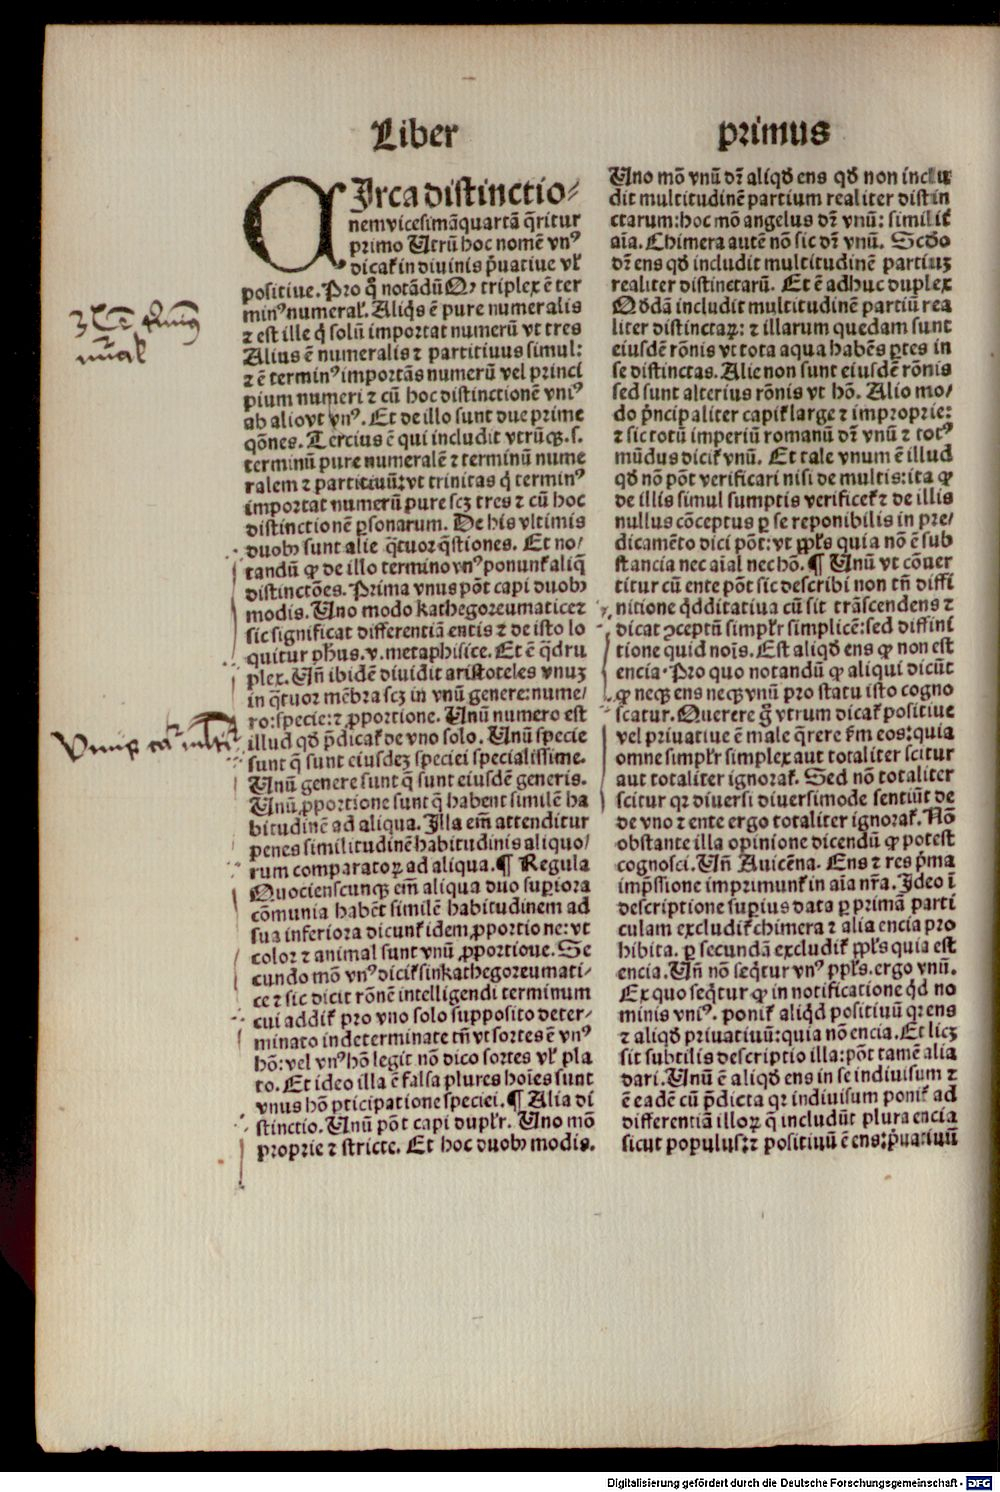 Liber primus
CIrca distinctio⸗
nem vicesimãquartã q̃ritur
primo Utrũ hoc nomẽ vnꝰ
dicat᷑ in diuinis p̃uatiue vl᷑
positiue. Pro q̃ notãdũ Qꝫ triplex ẽ ter
minꝰ numeral᷑. Aliq̃s ẽ pure numeralis
ꝛ est ille q̃ solũ importat numerũ vt tres
Alius ẽ numeralis ꝛ partitiuus simul:
ꝛ ẽ terminꝰ importãs numerũ vel princi
pium numeri ꝛ cũ hoc distinctionẽ vniꝰ
ab alio vt vnꝰ. Et de illo sunt due prime
qõnes. Tercius ẽ qui includit vtrũqꝫ. s.
terminũ pure numeralẽ ꝛ terminũ nume
ralem ꝛ partitiuũ: vt trinitas q̃ terminꝰ
importat numerũ pure scꝫ tres ꝛ cũ hoc
distinctionẽ ꝑsonarum. De his vltimis
duobꝫ sunt alie q̃tuor q̃stiones. Et no⸗
tandũ ꝙ de illo termino vnꝰ ponunt᷑ aliq̃
distinctões. Prima vnus põt capi duobꝫ
modis. Uno modo kathegoreumatice ꝛ
sic significat differentiã entis ꝛ de isto lo
quitur ph̃us. v. metaphisice. Et ẽ q̃dru
plex. Uñ ibidẽ diuidit aristoteles vnuꝫ
in q̃tuor mẽbra scꝫ in vnũ genere: nume⸗
ro: specie: ꝛ ꝓportione. Unũ numero est
illud qð p̃dicat᷑ de vno solo. Unũ specie
sunt q̃ sunt eiusdeꝫ speciei specialissime.
Unũ genere sunt q̃ sunt eiusdẽ generis.
Unũ ꝓportione sunt q̃ habent similẽ ha
bitudinẽ ad aliqua. Illa em̃ attenditur
penes similitudinẽ habitudinis aliquo⸗
rum comparatoꝝ ad aliqua. ¶ Regula
Quociensicunqꝫ em̃ aliqua duo suꝑiora
cõmunia habẽt similẽ habitudinem ad
sua inferiora dicunt᷑ idem ꝓportione: vt
color ꝛ animal sunt vnũ ꝓportione. Se
cundo mõ vnꝰ dicit᷑ sinkathegoreumati⸗
ce ꝛ sic dicit rõnẽ intelligendi terminum
cui addit᷑ pro vno solo supposito deter⸗
minato indeterminate tñ vt sortes ẽ vnꝰ
hõ: vel vnꝰ hõ legit nõ dico sortes vl᷑ pla
to. Et ideo illa ẽ falsa plures hoĩes sunt
vnus hõ ꝑticipatione speciei. ¶ Alia di
stinctio. Unũ põt capi dupl᷑r. Uno mõ
proprie ꝛ stricte. Et hoc duobꝫ modis.
Uno mõ vnũ dr̃ aliqð ens qð non inclu
dit multitudinẽ partium realiter distin
ctarum: hoc mõ angelus dr̃ vnũ: similit᷑
aĩa. Chimera autẽ nõ sic dr̃ vnũ. Scðo
dr̃ ens qð includit multitudinẽ partiuꝫ
realiter distinctarũ. Et ẽ adhuc duplex
Qðdã includit multitudinẽ partiũ rea
liter distinctaꝝ: ꝛ illarum quedam sunt
eiusdẽ rõnis vt tota aqua habẽs ꝑtes in
se distinctas. Alie non sunt eiusdẽ rõnis
sed sunt alterius rõnis vt hõ. Alio mo⸗
do p̃ncipaliter capit᷑ large ꝛ improprie:
ꝛ sic totũ imperiũ romanũ dr̃ vnũ ꝛ totꝰ
mũdus dicit᷑ vnũ. Et tale vnum ẽ illud
qð nõ põt verificari nisi de multis: ita ꝙ
de illis simul sumptis verificet᷑ ꝛ de illis
nullus cõceptus ꝑ se reponibilis in pre⸗
dicamẽto dici põt: vt ppl᷑s quia nõ ẽ sub
stancia nec aĩal nec hõ. ¶ Unũ vt cõuer
titur cũ ente põt sic describi non tñ diffi
nitione q̃dditatiua cũ sit trãscendens ꝛ
dicat ꝯceptũ simpl᷑r simplicẽ: sed diffini
tione quid noĩs. Est aliqð ens ꝙ non est
encia. Pro quo notandũ ꝙ aliqui dicũt
ꝙ neqꝫ ens neqꝫ vnũ pro statu isto cogno
scatur. Querere g̃ vtrum dicat᷑ positiue
vel priuatiue ẽ male q̃rere ẜm eos: quia
omne simpl᷑r simplex aut totaliter scitur
aut totaliter ignorat᷑. Sed nõ totaliter
scitur qꝛ diuersi diuersimode sentiũt de
de vno ꝛ ente ergo totaliter ignorat᷑. Nõ
obstante illa opinione dicendũ ꝙ potest
cognosci. Uñ Auicẽna. Ens ꝛ res p̃ma
imp̃ssione imprimunt᷑ in aĩa nr̃a. Ideo ĩ
descriptione suꝑius data ꝑ primã parti
culam excludit᷑ chimera ꝛ alia encia pro
hibita. ꝑ secundã excludit᷑ ppl᷑s quia est
encia. Uñ nõ seq̃tur vnꝰ ppl᷑s. ergo vnũ.
Ex quo seq̃tur ꝙ in notificatione q̃d no
minis vniꝰ. ponit᷑ aliq̃d positiuũ qꝛ ens
ꝛ aliqð priuatiuũ: quia nõ encia. Et licꝫ
sit subtilis descriptio illa: põt tamẽ alia
dari. Unũ ẽ aliqð ens in se indiuisum ꝛ
ẽ eadẽ cũ p̃dicta qꝛ indiuisum ponit᷑ ad
differentiã illoꝝ q̃ includũt plura encia
sicut populus: ꝛ positiuũ ẽ ens: p̃uatiuũ
Digitalisierung gefördert durch die Deutsche Forschungsgemeinschaft - DFG